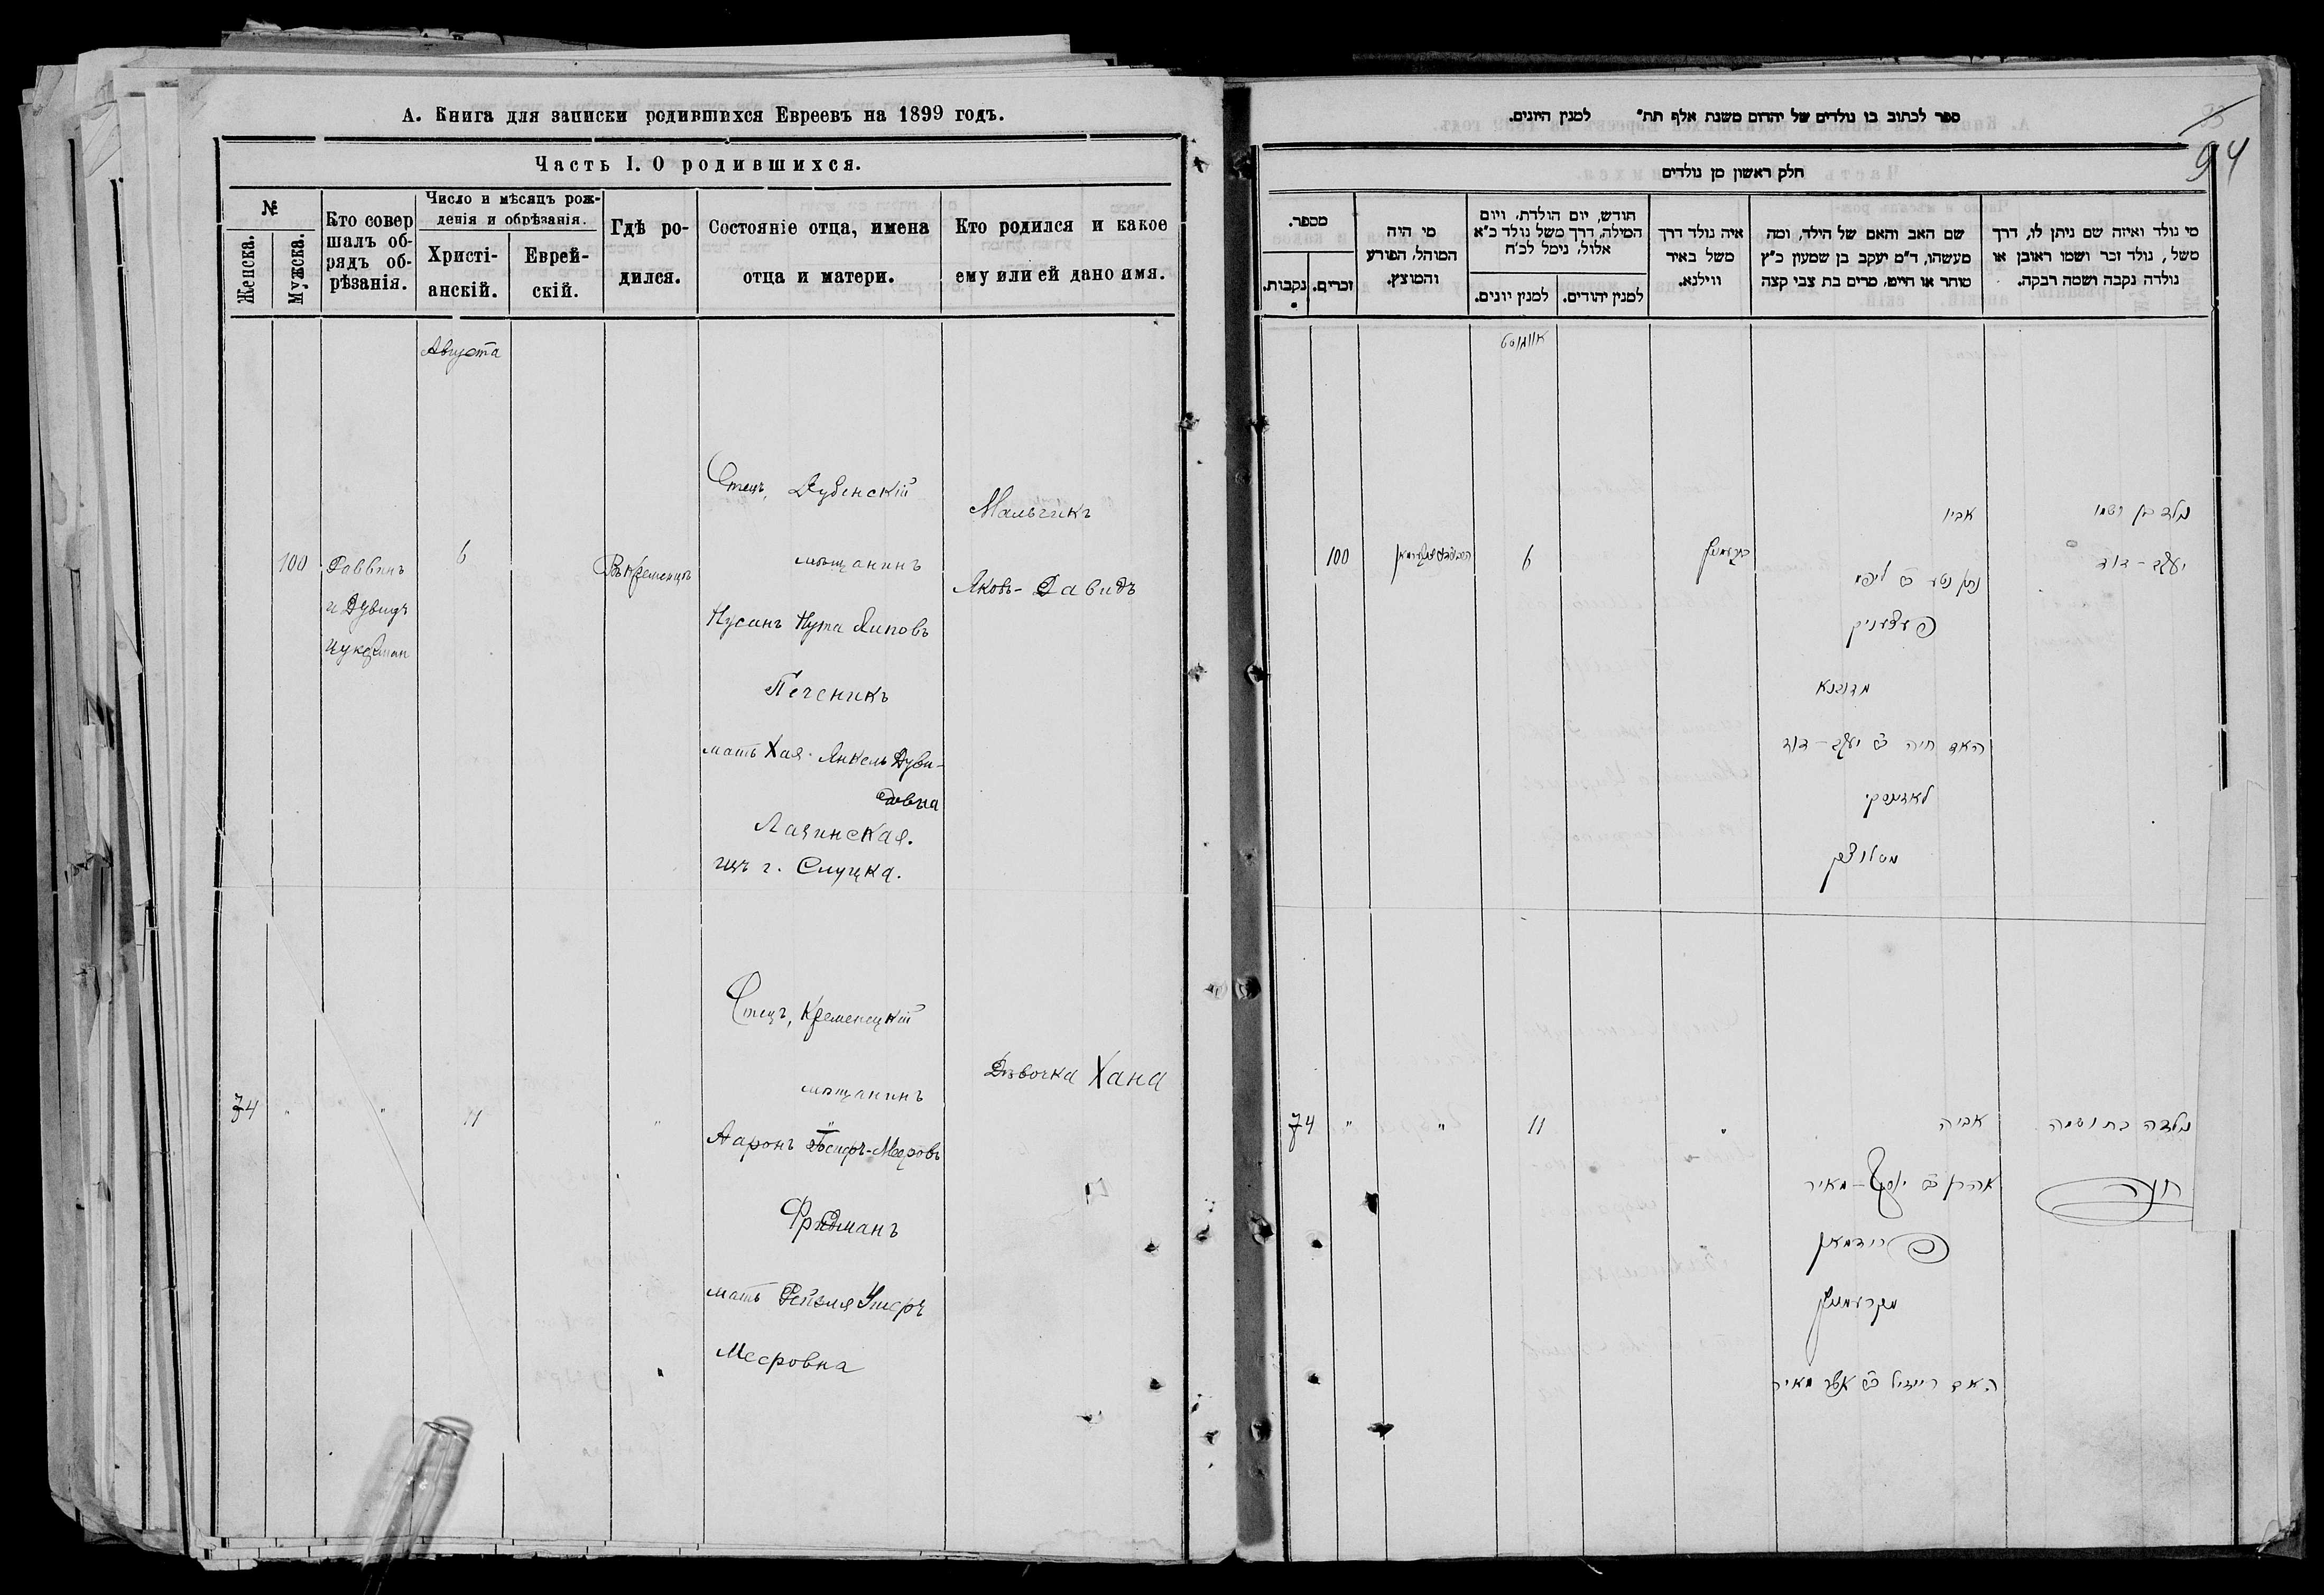 А. Книга для записки родившихся Евреевъ на 1899 годъ.
Часть I. О родившихся.
№
Женска.
Мужска.
Кто совер
шалъ об-
рядъ об-
рѣзанія.
Число и мѣсяцъ рож-
денія и обрѣзанія.
Христі-
анскій.
Еврей-
скій.
Гдѣ ро-
дился.
Состояніе отца, имена
отца и матери.
Кто родился и какое
ему или ей дано имя.
Августа
100
Раввинъ
и Дувидъ
Цукерман
6
Въ Кременцѣ
Отецъ, Дубенскій
мѣщанинъ
Нусинъ Нута Липовъ
Печеникъ
мать Хая Янкель Дуви-
довна
Лазинская.
изъ г. Слуцка.
Мальчикъ
Яковъ-Давидъ
74
"
"
11
"
Отецъ, Кременецкій
мѣщанинъ
Ааронъ Іосифъ-Мееровъ
Фридманъ
мать Рейзля Ушеръ
Мееровна
Дѣвочка Хана
ספר לכתוב בו נולדים של יהדום משנת אלף תת" למנין היונים.
94
חלק ראשון מן נולדים
מספר.
נקבות.
זכרים.
מי היה
המוהל, הפורע
והמוצץ.
חודש, יום הולדת, ויום
המילה, דרך משל נולד כ"א
אלול, נימל לכ"ח
למנין יונים.
למנין יהודים.
איה נולד דרך
משל באיר
ווילנא.
שם האב והאם של הילד, ומה
מעשהו, ד"מ יעקב בן שמעון כ"ץ
סוחר או חייט, מרים בת צבי קצה
מי נולד ואיזה שם ניתן לו, דרך
משל, נולד זכר ושמו ראובן או
נולדה נקבה ושמה רבקה.
אווגוסט
100
6
אביו
נתן נטע ליפא
פעצעניק
מדובנא
האם חיה יעקב-דוד
לאזינסקי
מסלוצק
נולד בן ושמו
יעקב-דוד
74
"
"
11
"
אביה
אהרן יוסף-מאיר
פרידמאן
מקרעמניץ
האם רייזיל אשר מאיר
נולדה בת ושמה
חנה